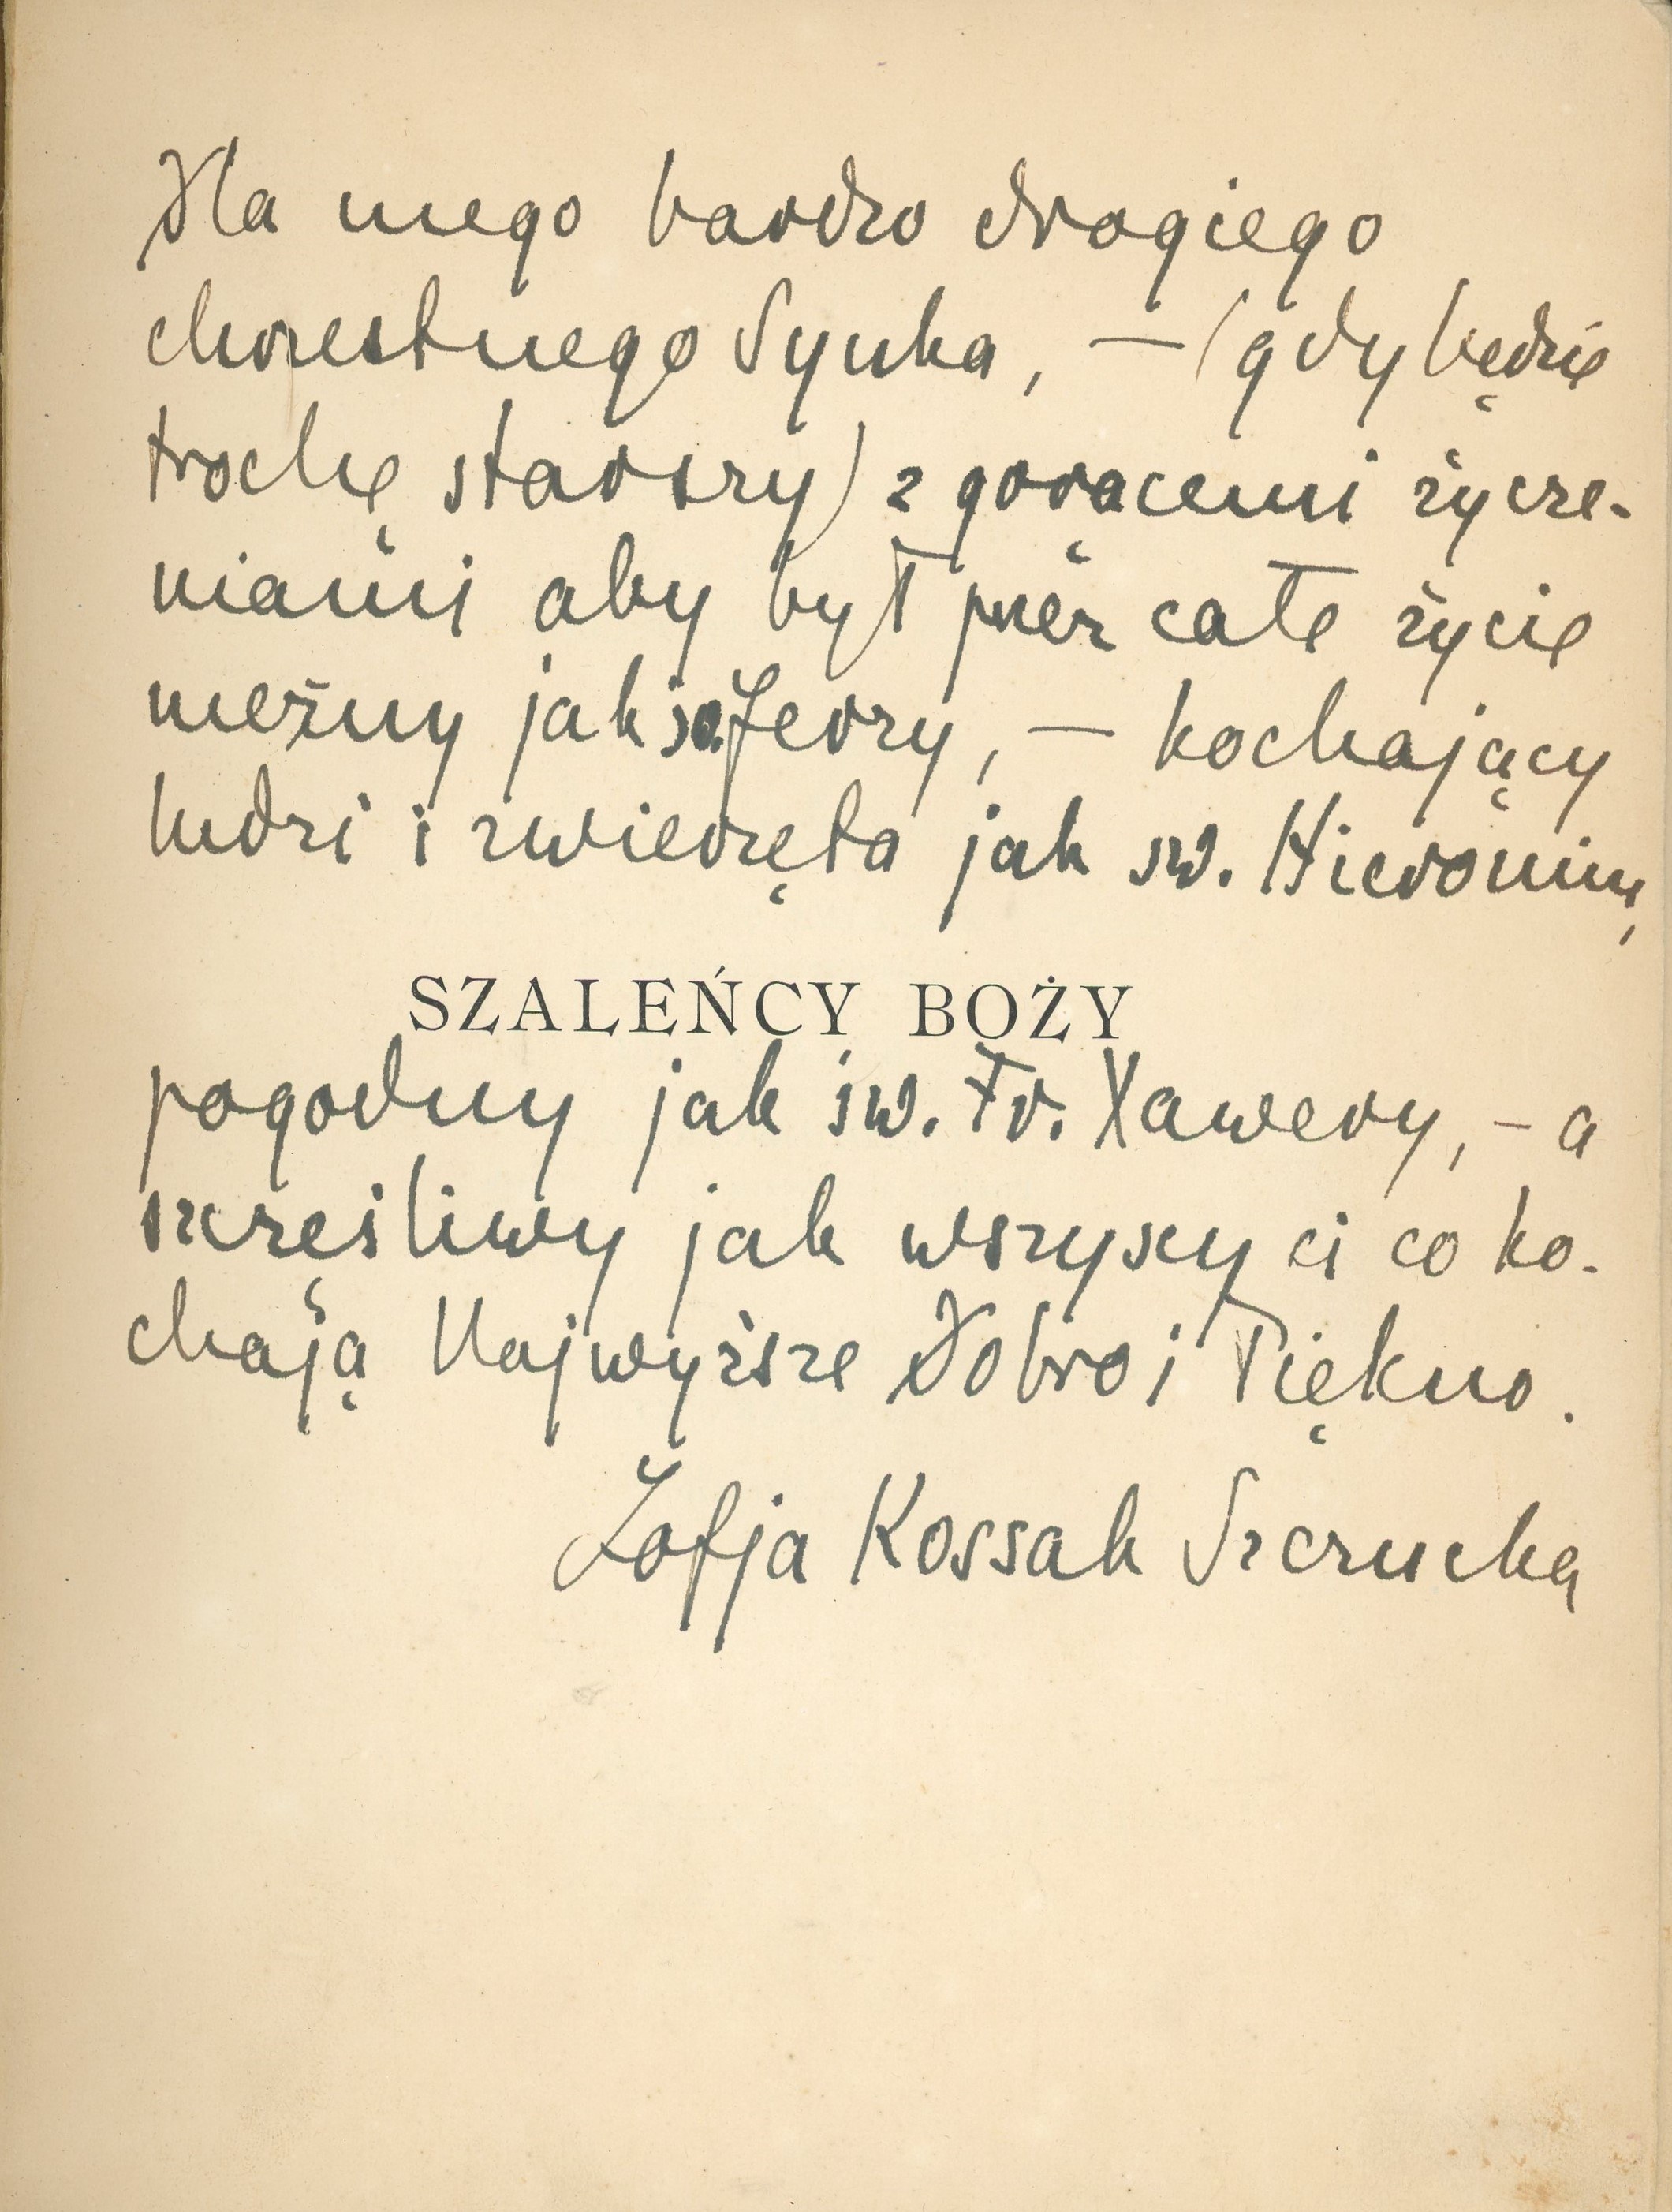 Dla mego bardzo drogiego
chrzestnego Synka, — (gdy będzie
trochę starszy) z gorącemi życze-
niami aby był przez całe życie
mężny jak św. Jerzy, — kochający
ludzi i zwierzęta jak św. Hieronim,
SZALEŃCY BOŻY
pogodny jak św. Fr. Xawery, – a
szczęśliwy jak wszyscy ci co ko-
chają Najwyższe Dobro i Piękno.
Zofja Kossak Szczucka